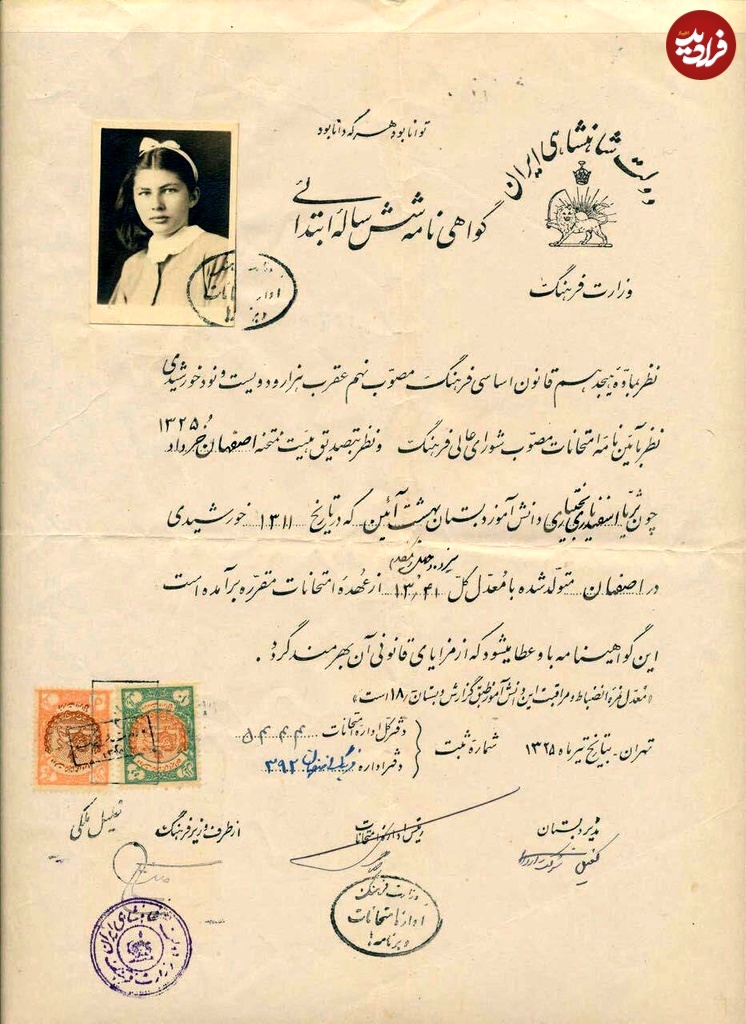 فرادید
توانا بود هر که دانا بود
دولت شاهنشاهی ایران
گواهی نامه شش سالۀ ابتدائی
وزارت فرهنگ
نظر بمادۀ هیجدهم قانون اساسی فرهنگ مصوب نهم عقرب هزار و دویست و نود خورشیدی
نظر بآئین نامه امتحانات مصوب شورای عالی فرهنگ و نظر بتصدیق هیئت ممتحنه اصفهان خرداد ۱۳۲۵
چون ثریا اسفندیاری بختیاری دانش آموز دبستان بهشت آئین که در تاریخ ۱۳۱۱ خورشیدی
در اصفهان متولد شده با معدل کل ۱۳٫۴۱ از عهدۀ امتحانات مقرره برآمده است
این گواهینامه باو عطا میشود که از مزایای قانونی آن بهره مند گردد.
«معدل نمرۀ انضباط و مراقبت این دانش آموز طبق گزارش دبستان ۱۸ است»
تهران - بتاریخ تیر ماه ۱۳۲۵ شمارۀ ثبت
دفتر کل ادارۀ امتحانات ۵۴۴۴
دفتر اداره فرهنگ اصفهان ۳۹۲
مدیر دبستان
رئیس ادارۀ کل امتحانات
از طرف وزیر فرهنگ
کفیل
وزارت فرهنگ
ادارۀ امتحانات
و برنامه ها
دولت شاهنشاهی ایران
وزارت فرهنگ